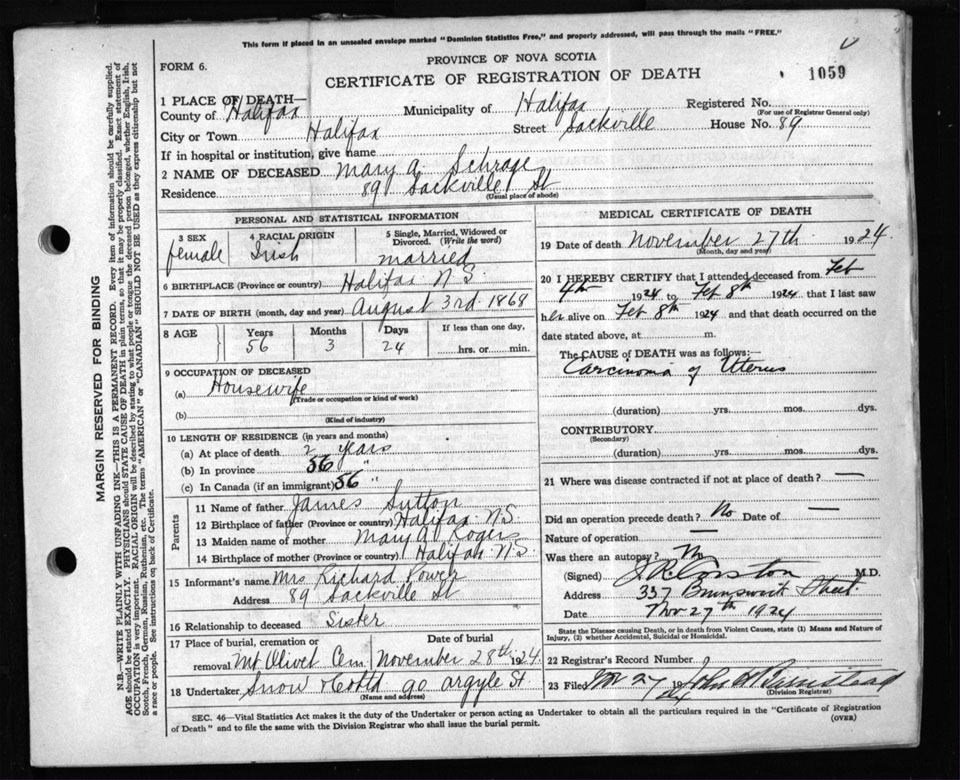 This form if placed in an unsealed envelope marked "Dominion Statistics Free," and properly addressed, will pass through the mails "FREE."
PROVINCE OF NOVA SCOTIA
FORM 6.
CERTIFICATE OF REGISTRATION OF DEATH
1059
1 PLACE OF DEATH—
County of Halifax Municipality of Halifax Registered No.
(For use of Registrar General only)
City or Town Halifax Street Sackville House No. 89
If in hospital or institution, give name
2 NAME OF DECEASED Mary A. Schrage
Residence 89 Sackville St
(Usual place of abode)
PERSONAL AND STATISTICAL INFORMATION
3 SEX 4 RACIAL ORIGIN 5 Single, Married, Widowed or Divorced. (Write the word)
female Irish married
6 BIRTHPLACE (Province or country) Halifax N.S.
7 DATE OF BIRTH (month, day and year) August 3rd 1868
8 AGE Years Months Days If less than one day,
56 3 24 hrs. or min.
9 OCCUPATION OF DECEASED
(a) Housewife
(Trade or occupation or kind of work)
(b)
(Kind of industry)
10 LENGTH OF RESIDENCE (in years and months)
(a) At place of death 2 years
(b) In province 56 "
(c) In Canada (if an immigrant) 56 "
Parents
11 Name of father James Sutton
12 Birthplace of father (Province or country) Halifax N.S.
13 Maiden name of mother Mary A. Rogers
14 Birthplace of mother (Province or country) Halifax N.S.
15 Informant's name Mrs Richard Power
Address 89 Sackville St
16 Relationship to deceased Sister
17 Place of burial, cremation or removal Mt Olivet Cem Date of burial November 28th 1924
18 Undertaker Snow & Co Ltd 90 Argyle St.
(Name and address)
MEDICAL CERTIFICATE OF DEATH
19 Date of death November 27th 1924.
(Month, day and year)
20 I HEREBY CERTIFY that I attended deceased from Feb
4th 1924 to Feb 8th 1924 that I last saw
her alive on Feb 8th 1924 and that death occurred on the
date stated above, at m.
The CAUSE OF DEATH was as follows:—
Carcinoma of Uterus
(duration) yrs. mos. dys.
CONTRIBUTORY
(Secondary)
(duration) yrs. mos. dys.
21 Where was disease contracted if not at place of death? —
Did an operation precede death? No Date of —
Nature of operation —
Was there an autopsy? No
(Signed) M.D.
Address 337 Brunswick Street.
Date Nov 27th 1924
State the Disease causing Death, or in death from Violent Causes, state (1) Means and Nature of
Injury, (2) whether Accidental, Suicidal or Homicidal.
22 Registrar's Record Number
23 Filed Nov 27 19 24 John A
(Division Registrar)
SEC. 46—Vital Statistics Act makes it the duty of the Undertaker or person acting as Undertaker to obtain all the particulars required in the "Certificate of Registration
of Death" and to file the same with the Division Registrar who shall issue the burial permit.
(OVER)
MARGIN RESERVED FOR BINDING
N.B.—WRITE PLAINLY WITH UNFADING INK—THIS IS A PERMANENT RECORD. Every item of information should be carefully supplied.
AGE should be stated EXACTLY. PHYSICIANS should STATE CAUSE OF DEATH in plain terms, so that it may be properly classified. Exact statement of
OCCUPATION is very important. RACIAL ORIGIN will be described by stating to what people or tongue the deceased person belonged, whether English, Irish,
Scotch, French, German, Russian, Ruthenian, etc. The terms "AMERICAN" or "CANADIAN" SHOULD NOT BE USED as they express citizenship but not
a race or people. See instructions on back of Certificate.